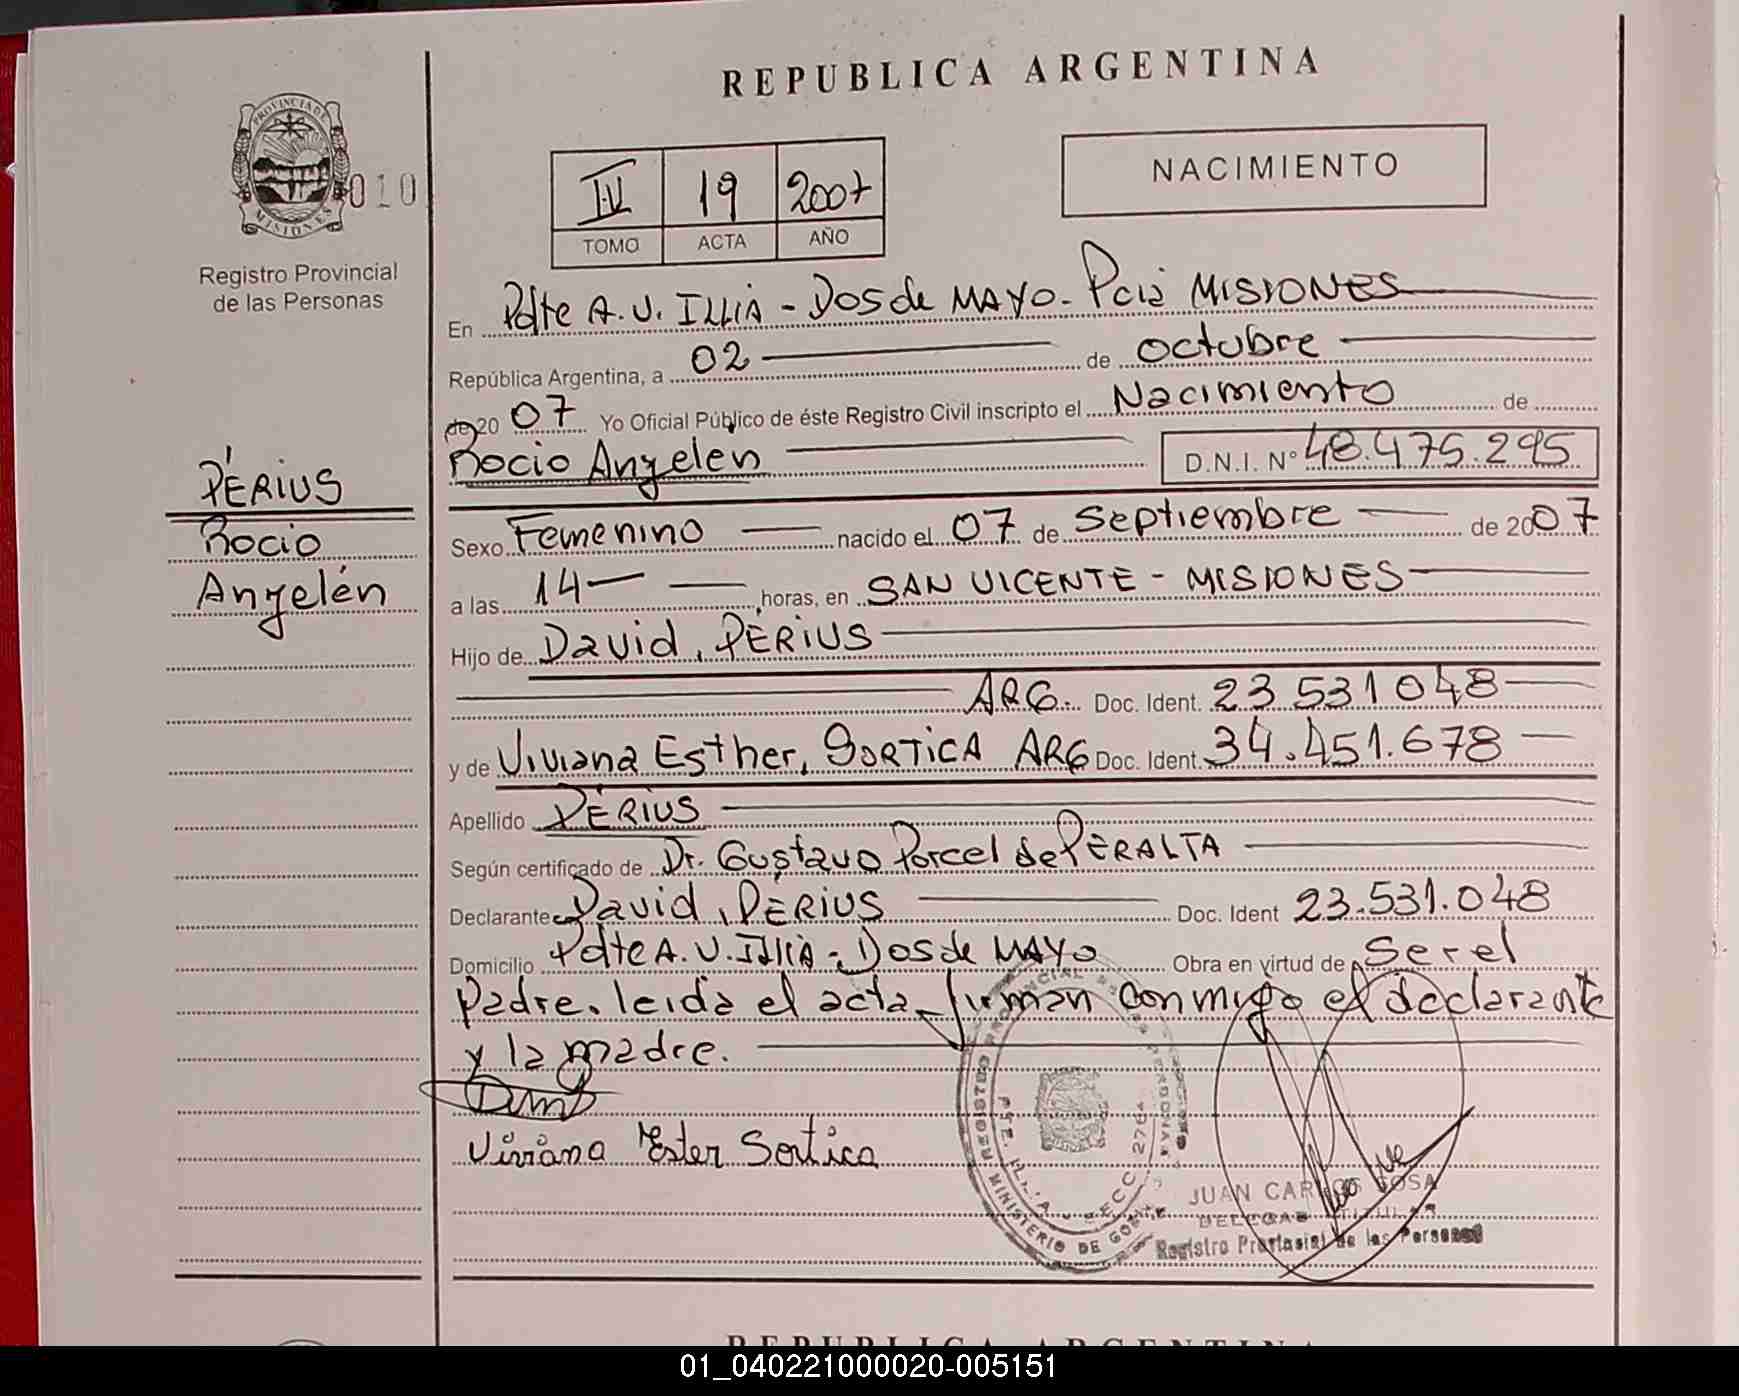 REPUBLICA ARGENTINA
PROVINCIA DE
MISIONES
010
Registro Provincial
de las Personas
IV 19 2007
TOMO ACTA AÑO
NACIMIENTO
En Pdte A. U. ILLIA - Dos de MAYO - Pcia MISIONES
República Argentina, a 02 de octubre
de 20 07 Yo Oficial Público de éste Registro Civil inscripto el Nacimiento de
Rocio Angelen D.N.I. N° 48.475.295
PÉRIUS
Rocio
Angelén
Sexo Femenino nacido el 07 de Septiembre de 2007
a las 14 horas, en SAN VICENTE - MISIONES
Hijo de David, PÉRIUS
ARG. Doc. Ident. 23.531.048
y de Viviana Esther, SORTICA ARG Doc. Ident. 34.451.678
Apellido PÉRIUS
Según certificado de Dr. Gustavo Porcel de PERALTA
Declarante David, PÉRIUS Doc. Ident 23.531.048
Domicilio Pdte A. U. Illia - Dos de MAYO Obra en virtud de Ser el
padre. leida el acta firman conmigo el declarante
y la madre.
Viviana Ester Sortica
JUAN CARLOS SOSA
DELEGADO TITULAR
Registro Provincial de las Personas
MINISTERIO DE
01_040221000020-005151